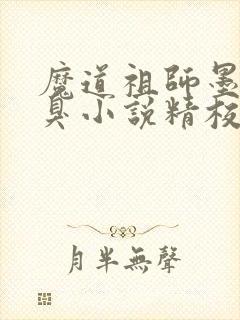 魔道祖師墨
臭小說精校
月半無聲